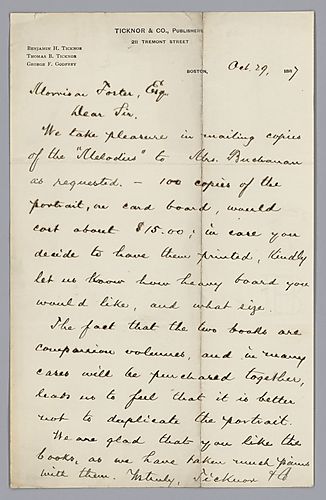 TICKNOR & CO., PUBLISHERS
211 TREMONT STREET
BENJAMIN H. TICKNOR
THOMAS B. TICKNOR
GEORGE F. GODFREY
BOSTON, Oct. 29, 1887
Morrison Foster, Esq.
Dear Sir,
We take pleasure in mailing copies
of the "Melodies" to Mrs. Buchanan
as requested. — 100 copies of the
portrait, on card board, would
cost about $15.00; in case you
decide to have them printed, kindly
let us know how heavy board you
would like, and what size.
The fact that the two books are
companion volumes, and in many
cases will be purchased together,
leads us to feel that it is better
not to duplicate the portrait.
We are glad that you like the
books, as we have taken much pains
with them. Ticknor & Co